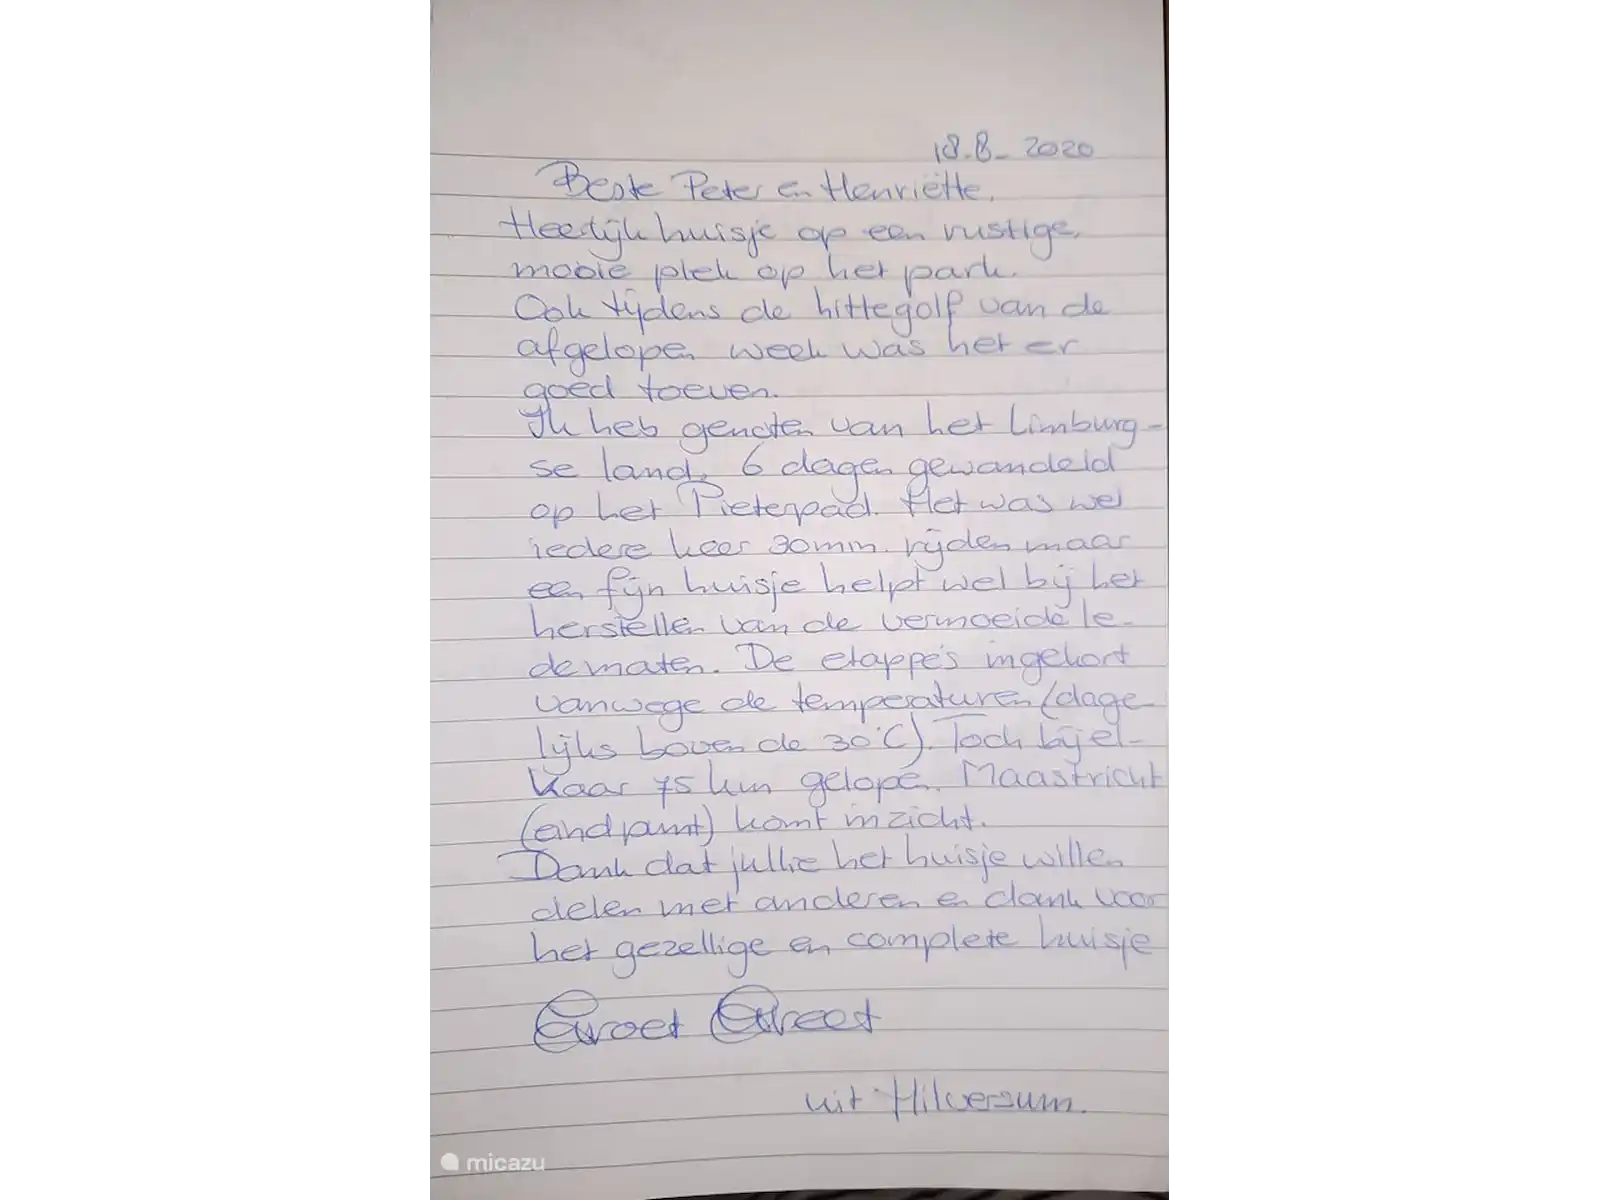 18-8-2020
Beste Peter en Henriëtte,
Heerlijk huisje op een rustige,
mooie plek op het park.
Ook tijdens de hittegolf van de
afgelopen week was het er
goed toeven.
Ik heb genoten van het Limburg-
se land. 6 dagen gewandeld
op het Pieterpad. Het was wel
iedere keer 30 min. rijden maar
een fijn huisje helpt wel bij het
herstellen van de vermoeide le-
dematen. De etappe's ingekort
vanwege de temperaturen (dage-
lijks boven de 30°C). Toch bij el-
kaar 75 km gelopen. Maastricht
(eindpunt) komt in zicht.
Dank dat jullie het huisje willen
delen met anderen en dank voor
het gezellige en complete huisje
Groet Greet
uit Hilversum.
micazu